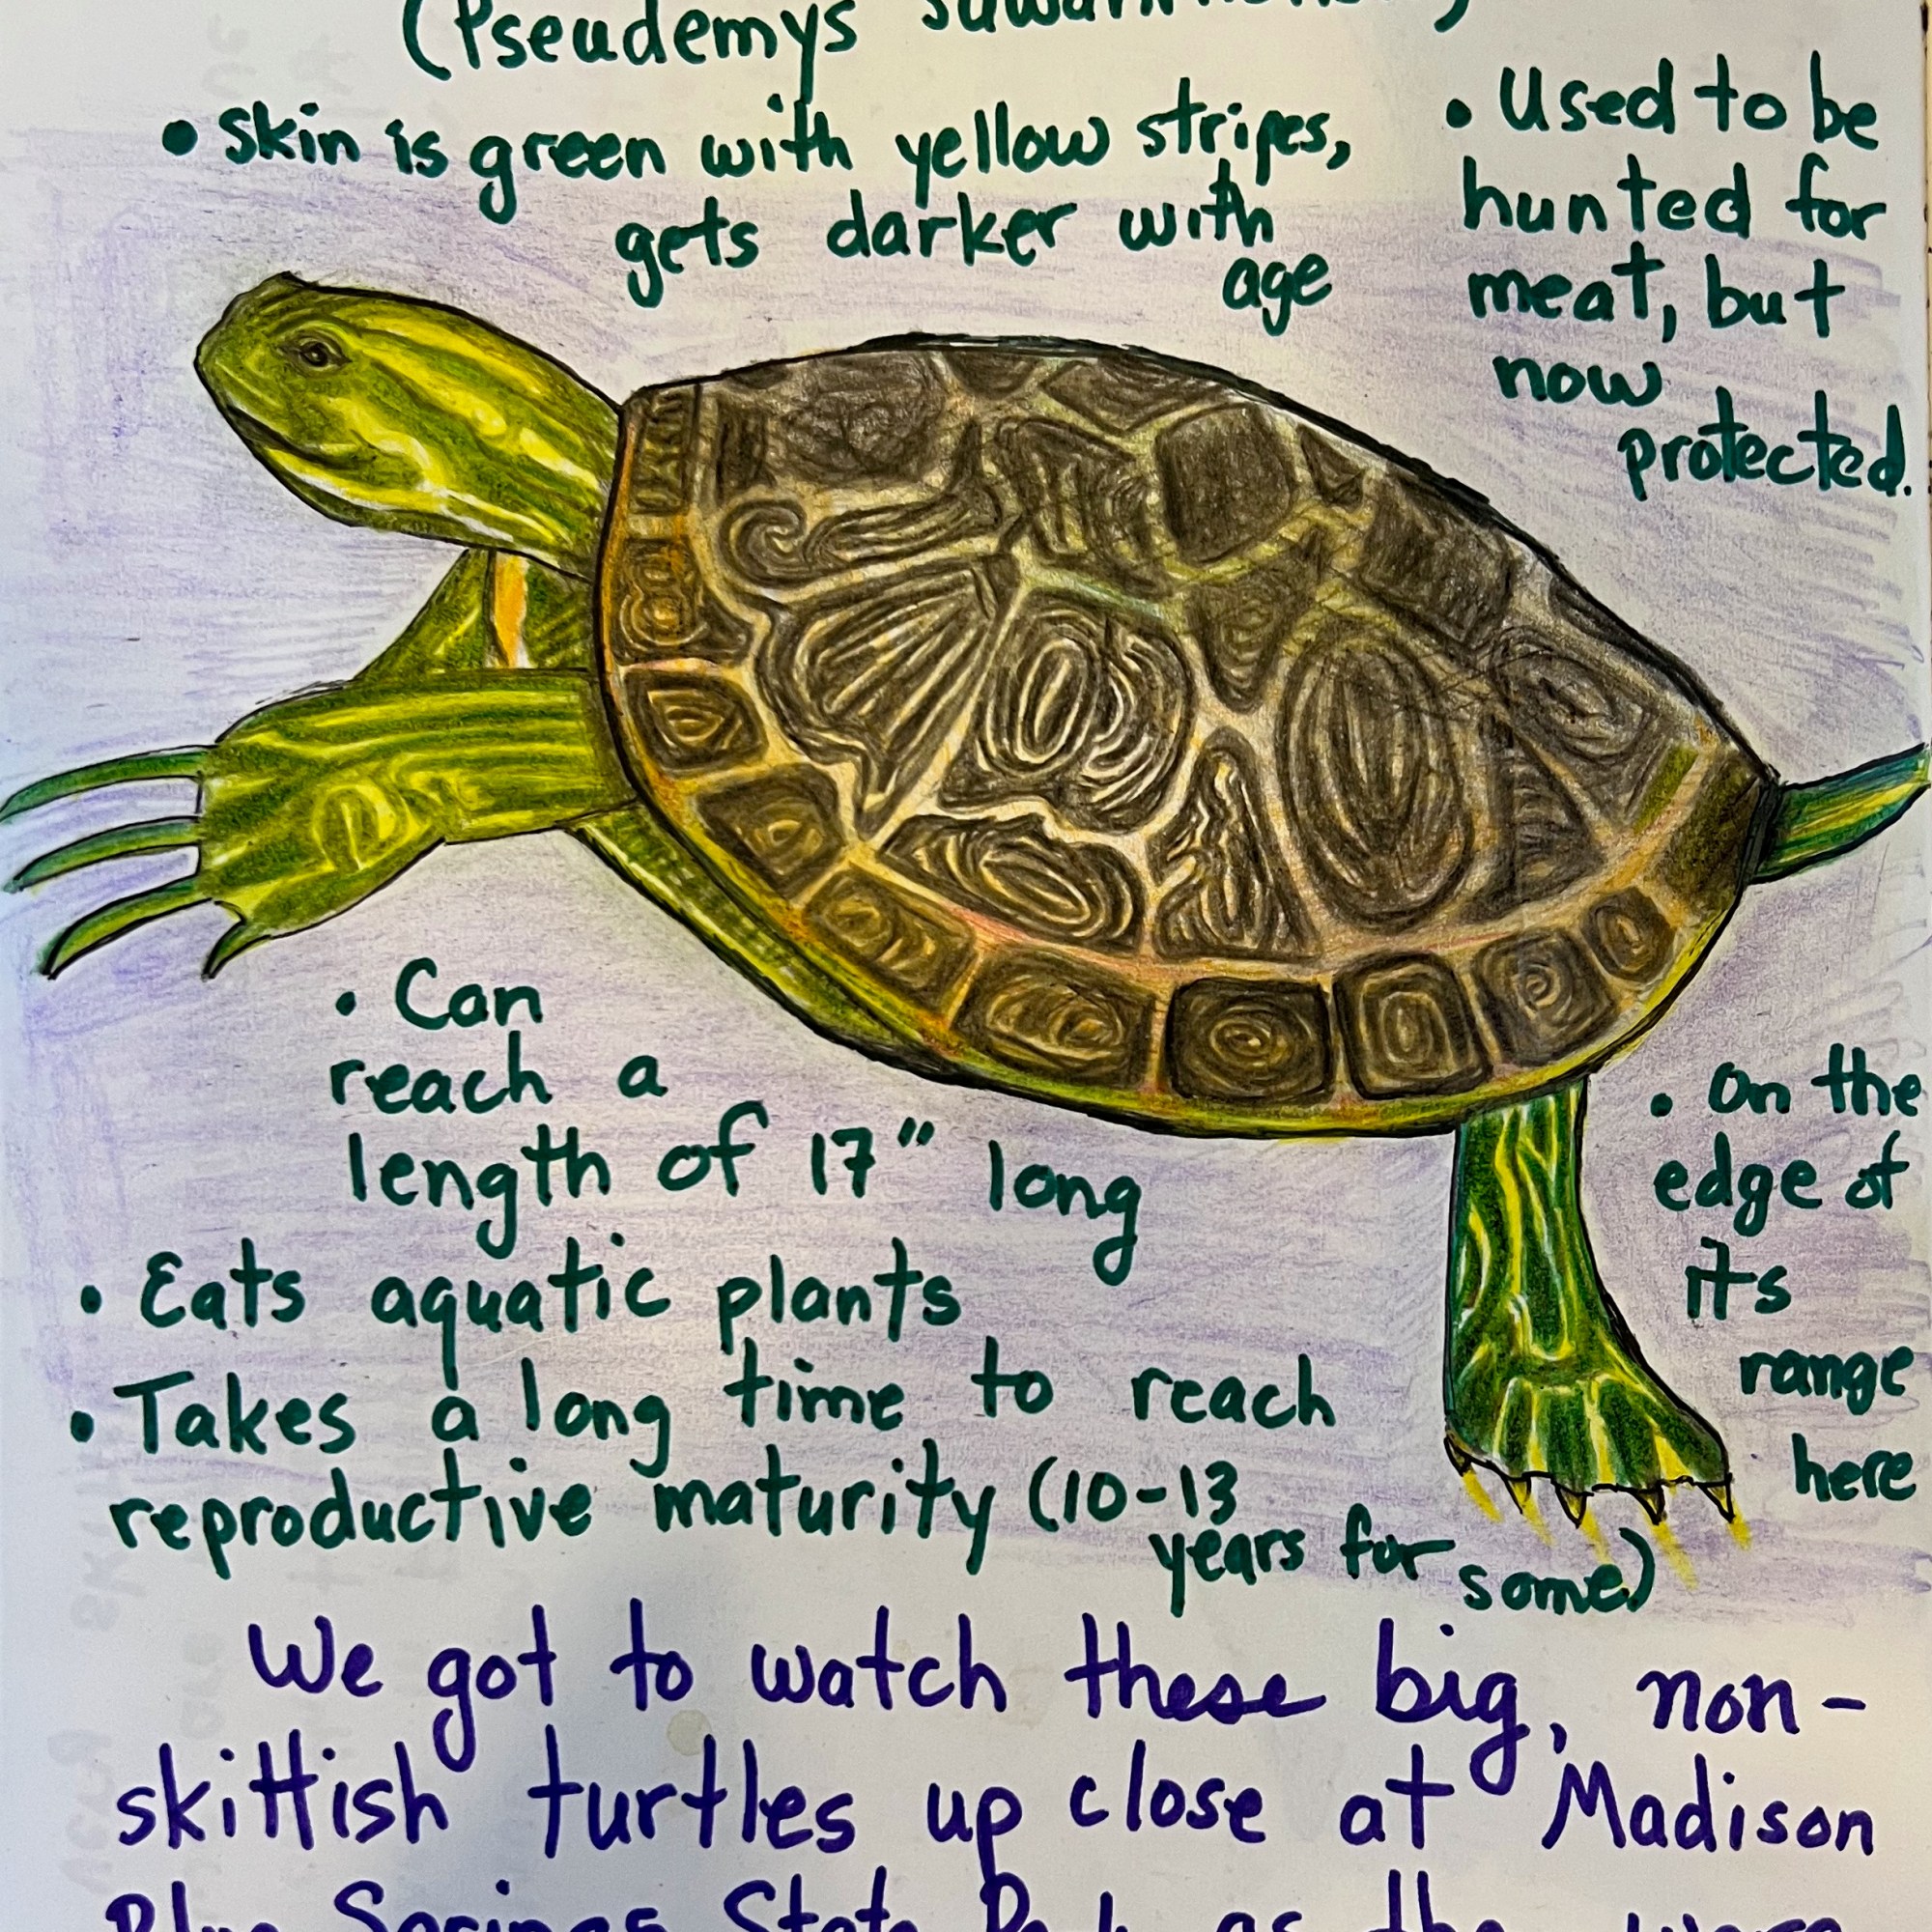 (Pseudemys
• Skin is green with yellow stripes,
gets darker with
age
• Used to be
hunted for
meat, but
now
protected.
• Can
reach a
length of 17" long
• Eats aquatic plants
• Takes a long time to reach
reproductive maturity (10-13
years for
some)
• On the
edge of
its
range
here
We got to watch these big, non-
skittish turtles up close at Madison
Blue Springs State Park as they were